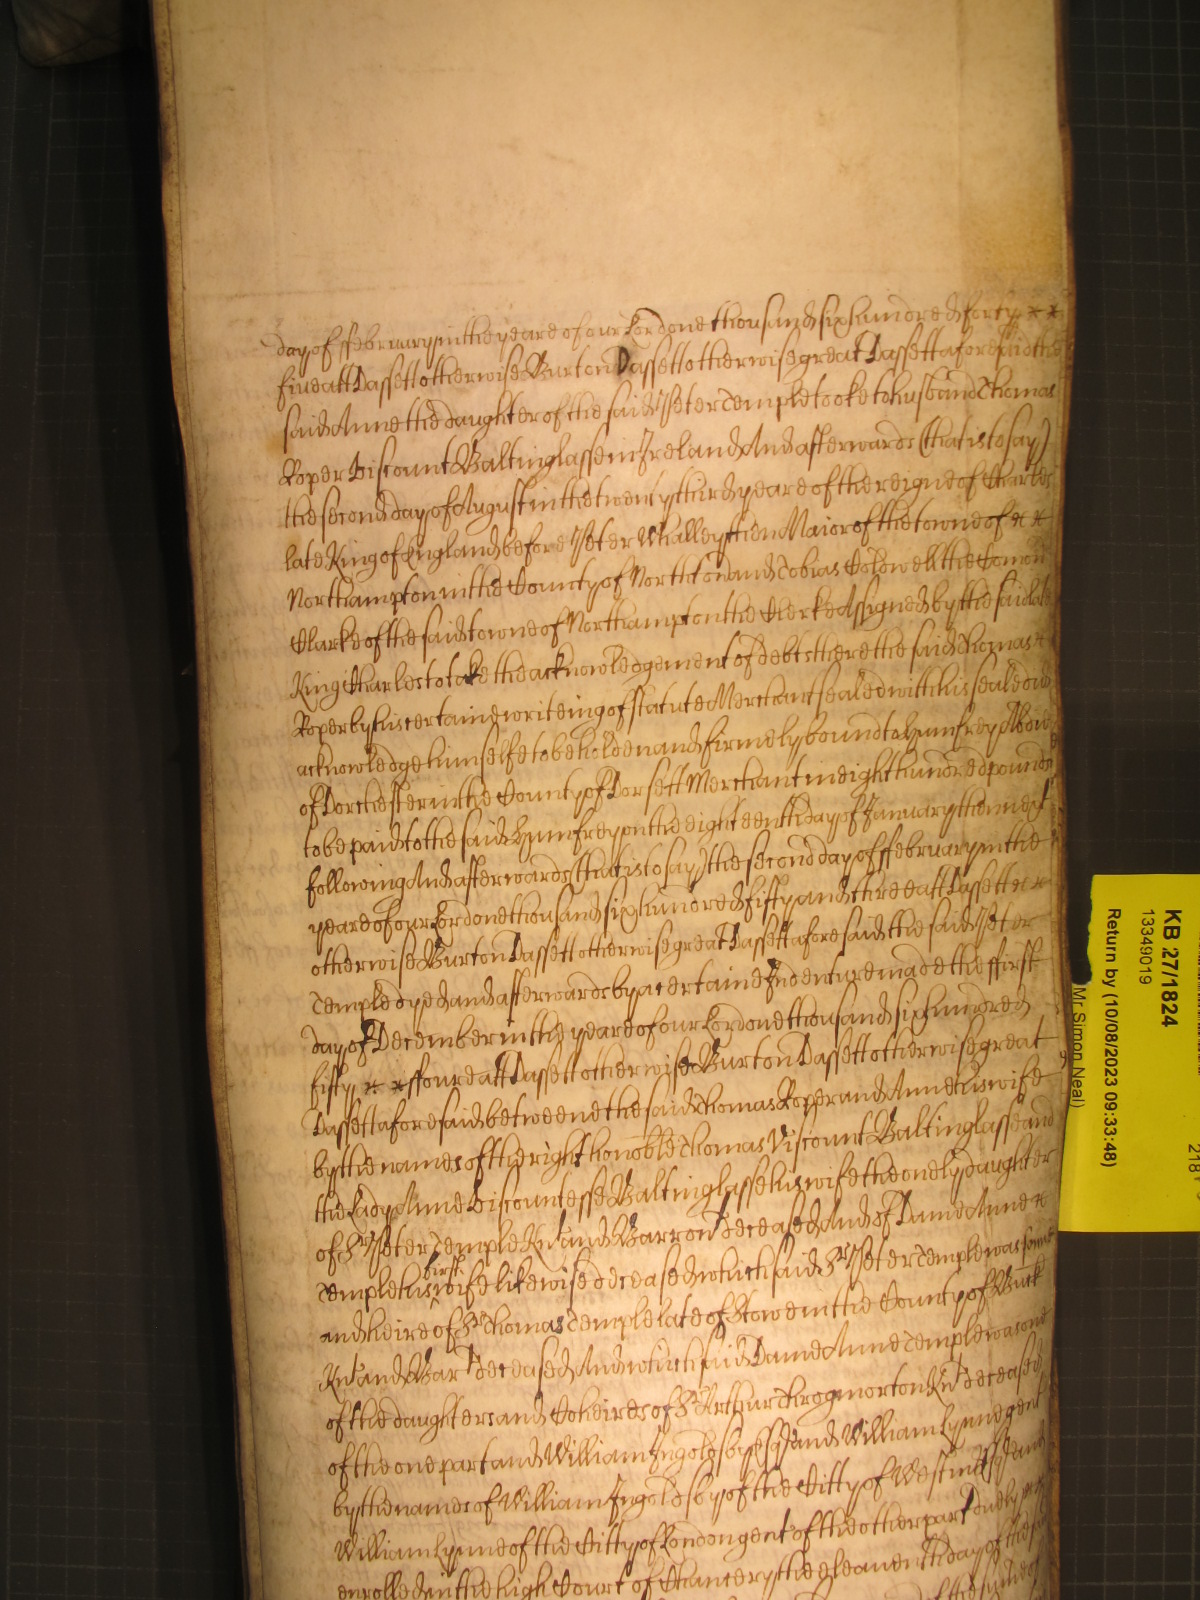 day of ffebruary in the yeare of our Lord one thousand six hundred & forty
five att Dassett otherwise Burton Dassett otherwise great Dassett aforesaid the
said Anne the daughter of the said Peter Temple tooke to husband Thomas
Roper Viscount Baltinglasse in Ireland And afterwards (that is to say)
the second day of August in the twentythird yeare of the reigne of Charles
late King of England before Peter Whalley then Maior of the towne of
Northampton in the County of Northton and Tobias Coldwell the Comon
Clarke of the said towne of Northampton the Clerke Assigned by the said late
King Charles to take the acknowledgement of debts there the said Thomas
Roper by his certaine writeing of statute Merchant sealed with his seale did
acknowledge himselfe to be holden and firmely bound to Humfrey
of Dorchester in the County of Dorsett Merchant in eight hundred pounds
to be paid to the said Humfrey on the eighteenth day of January then next
following And afterwards (that is to say) the second day of ffebruary in the
yeare of our Lord one thousand six hundred & fifty and three att Dassett
otherwise Burton Dassett otherwise great Dassett aforesaid the said Peter
Temple dyed and afterwards by a certaine Indenture made the ffirst
day of December in the yeare of our Lord one thousand six hundred
fifty ffoure att Dassett otherwise Burton Dassett otherwise great
Dassett aforesaid betweene the said Thomas Roper and Anne his wife
by the names of the right honoble Thomas Viscount Baltinglasse and
the Lady Anne Viscountesse Baltinglasse his wife the onely daughter
of Sr Peter Temple Knt and Barront deceased And of Dame Anne
Temple his first wife likewise deceased which said Sr Peter Temple was sonne
and heire of Sr Thomas Temple late of Stowe in the County of Buck
Knt and Bart deceased And which said Dame Anne Temple was one
of the daughters and Coheires of Sr Arthur Throgmorton Knt deceased
of the one part and William Ingoldsby Esqr and William Lynne gent
by the names of William Ingoldsby of the Citty of Westmr Esqr and
William Lynne of the Citty of London gent of the other part duely
enrolled in the high Court of Chancery the eleaventh day of the
KB 27/1824
13349019
Return by (10/08/2023 09:33:48)
Mr Simon Neal)